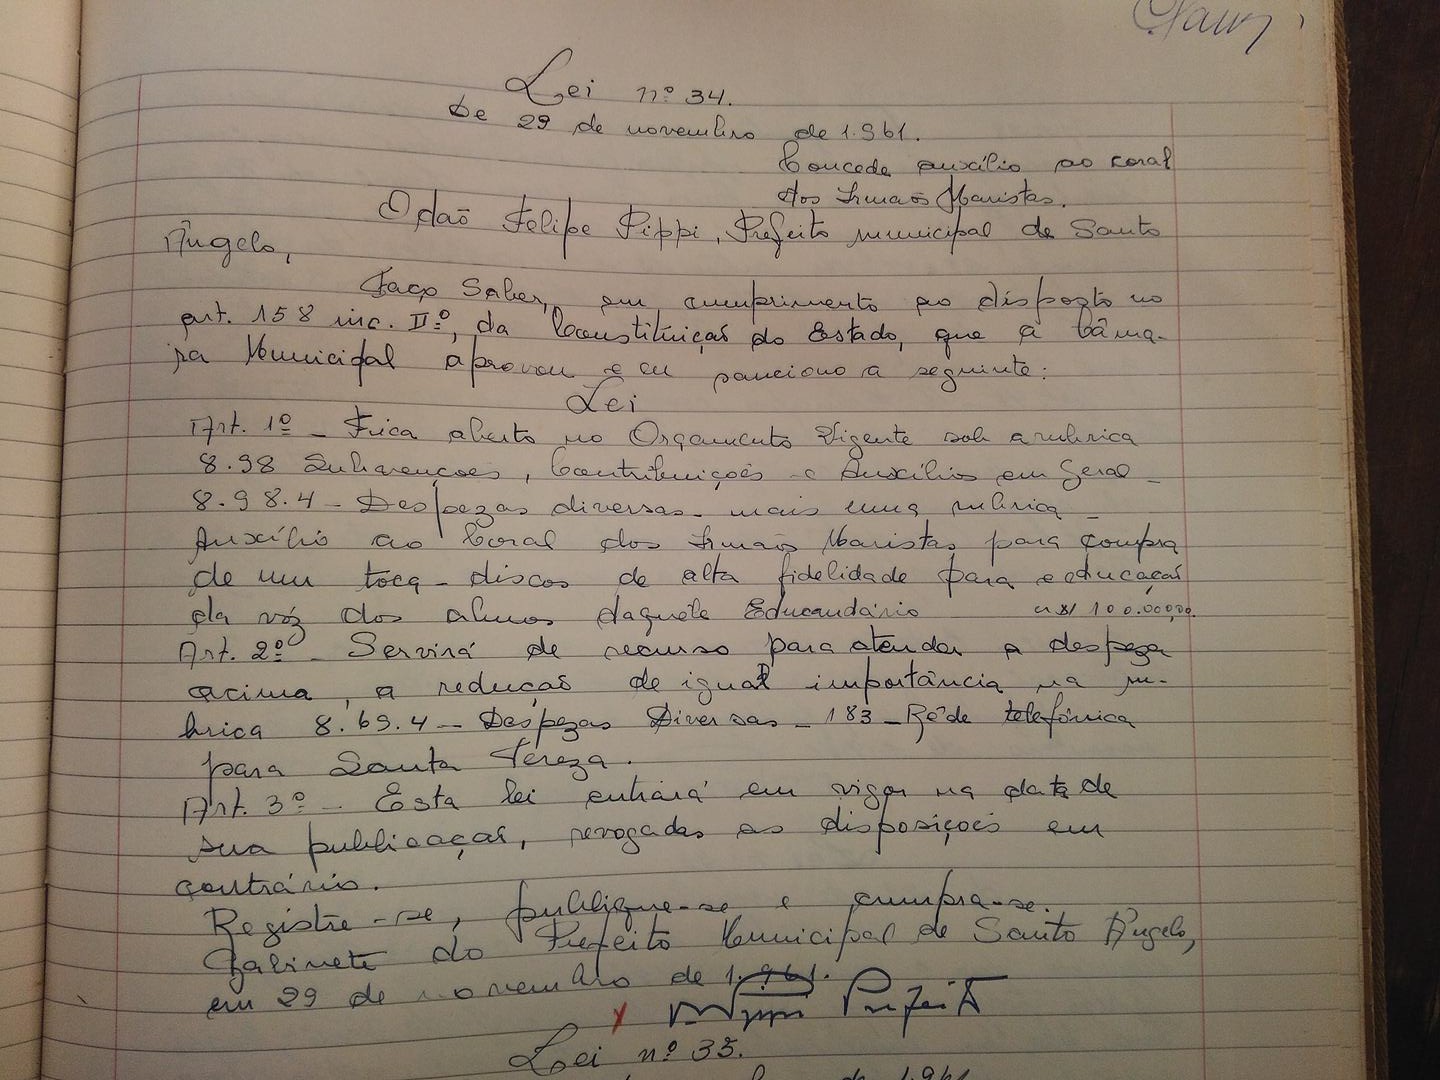 Lei nº 34.
De 29 de novembro de 1.961.
Concede auxílio ao coral
dos Irmaõs Maristas.
Odaõ Felipe Pippi, Prefeito municipal de Santo
Ângelo,
Faço Saber, em cumprimento ao disposto no
art. 158 inc. IIº, da Constituiçaõ do Estado, que a Câma-
ra Municipal aprovou e eu sanciono a seguinte:
Lei
Art. 1º - Fica aberto no Orçamento Vigente sob a rubrica
8.98 Subvençoẽs, Contribuiçoẽs e Auxílios em Geral -
8.98.4 - Despezas diversas - mais uma rubrica -
Auxílio ao Coral dos Irmaõs Maristas para compra
de um toca-discos de alta fidelidade para e educaçaõ
da vóz dos alunos daquele Educandário cr$ 100.000,00.
Art. 2º - Servirá de recurso para atender a despeza
acima, a reduçaõ de igual importância na ru-
brica 8.69.4 - Despezas Diversas - 183 - Rêde telefônica
para Santa Tereza.
Art. 3º - Esta lei entrará em vigor na data de
sua publicaçaõ, revogadas as disposiçoẽs em
contrário.
Registre-se, publique-se e cumpra-se.
Gabinete do Prefeito Municipal de Santo Ângelo,
em 29 de novembro de 1.961.
x Pippi Prefeito
Lei nº 35.
de 1.961